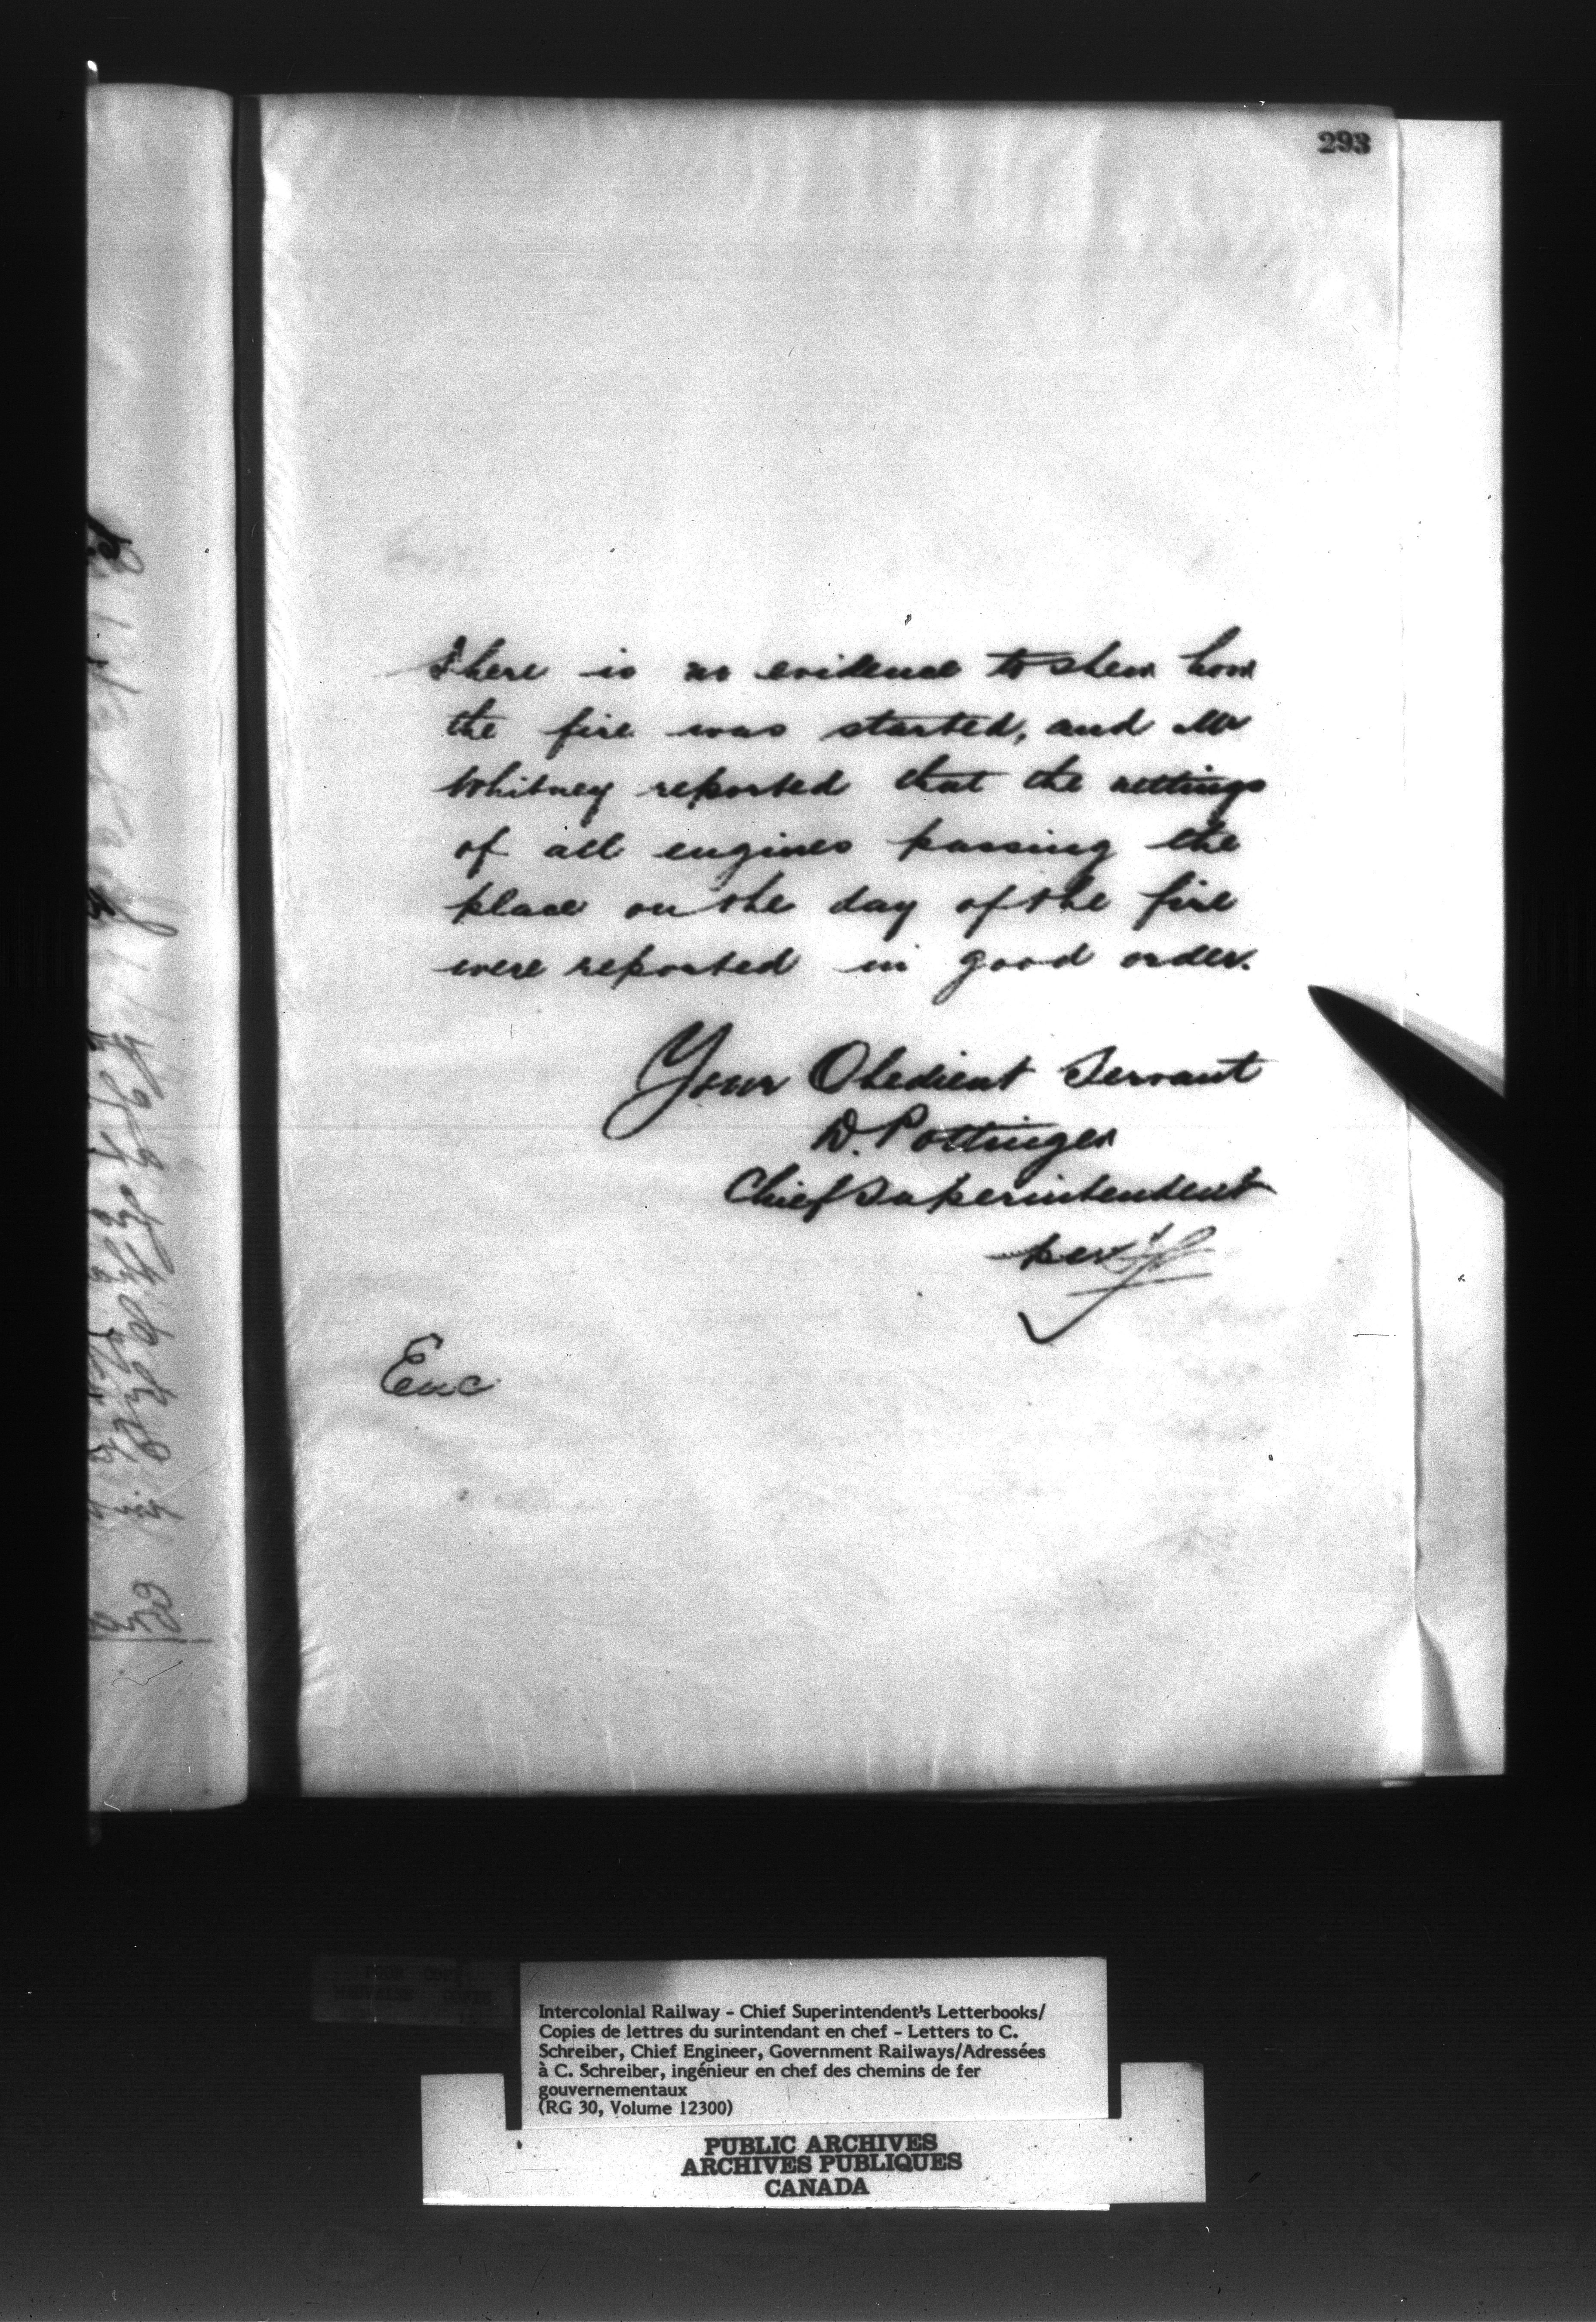 293
There is no evidence to shew how
the fire was started, and Mr
Whitney reported that the nettings
of all engines passing the
place on the day of the fire
were reported in good order.
Your Obedient Servant
D. Pottinger
Chief Superintendent
per
Enc
POOR COPY
MAUVAISE COPIE
Intercolonial Railway - Chief Superintendent's Letterbooks/
Copies de lettres du surintendant en chef - Letters to C.
Schreiber, Chief Engineer, Government Railways/Adressées
à C. Schreiber, ingénieur en chef des chemins de fer
gouvernementaux
(RG 30, Volume 12300)
PUBLIC ARCHIVES
ARCHIVES PUBLIQUES
CANADA